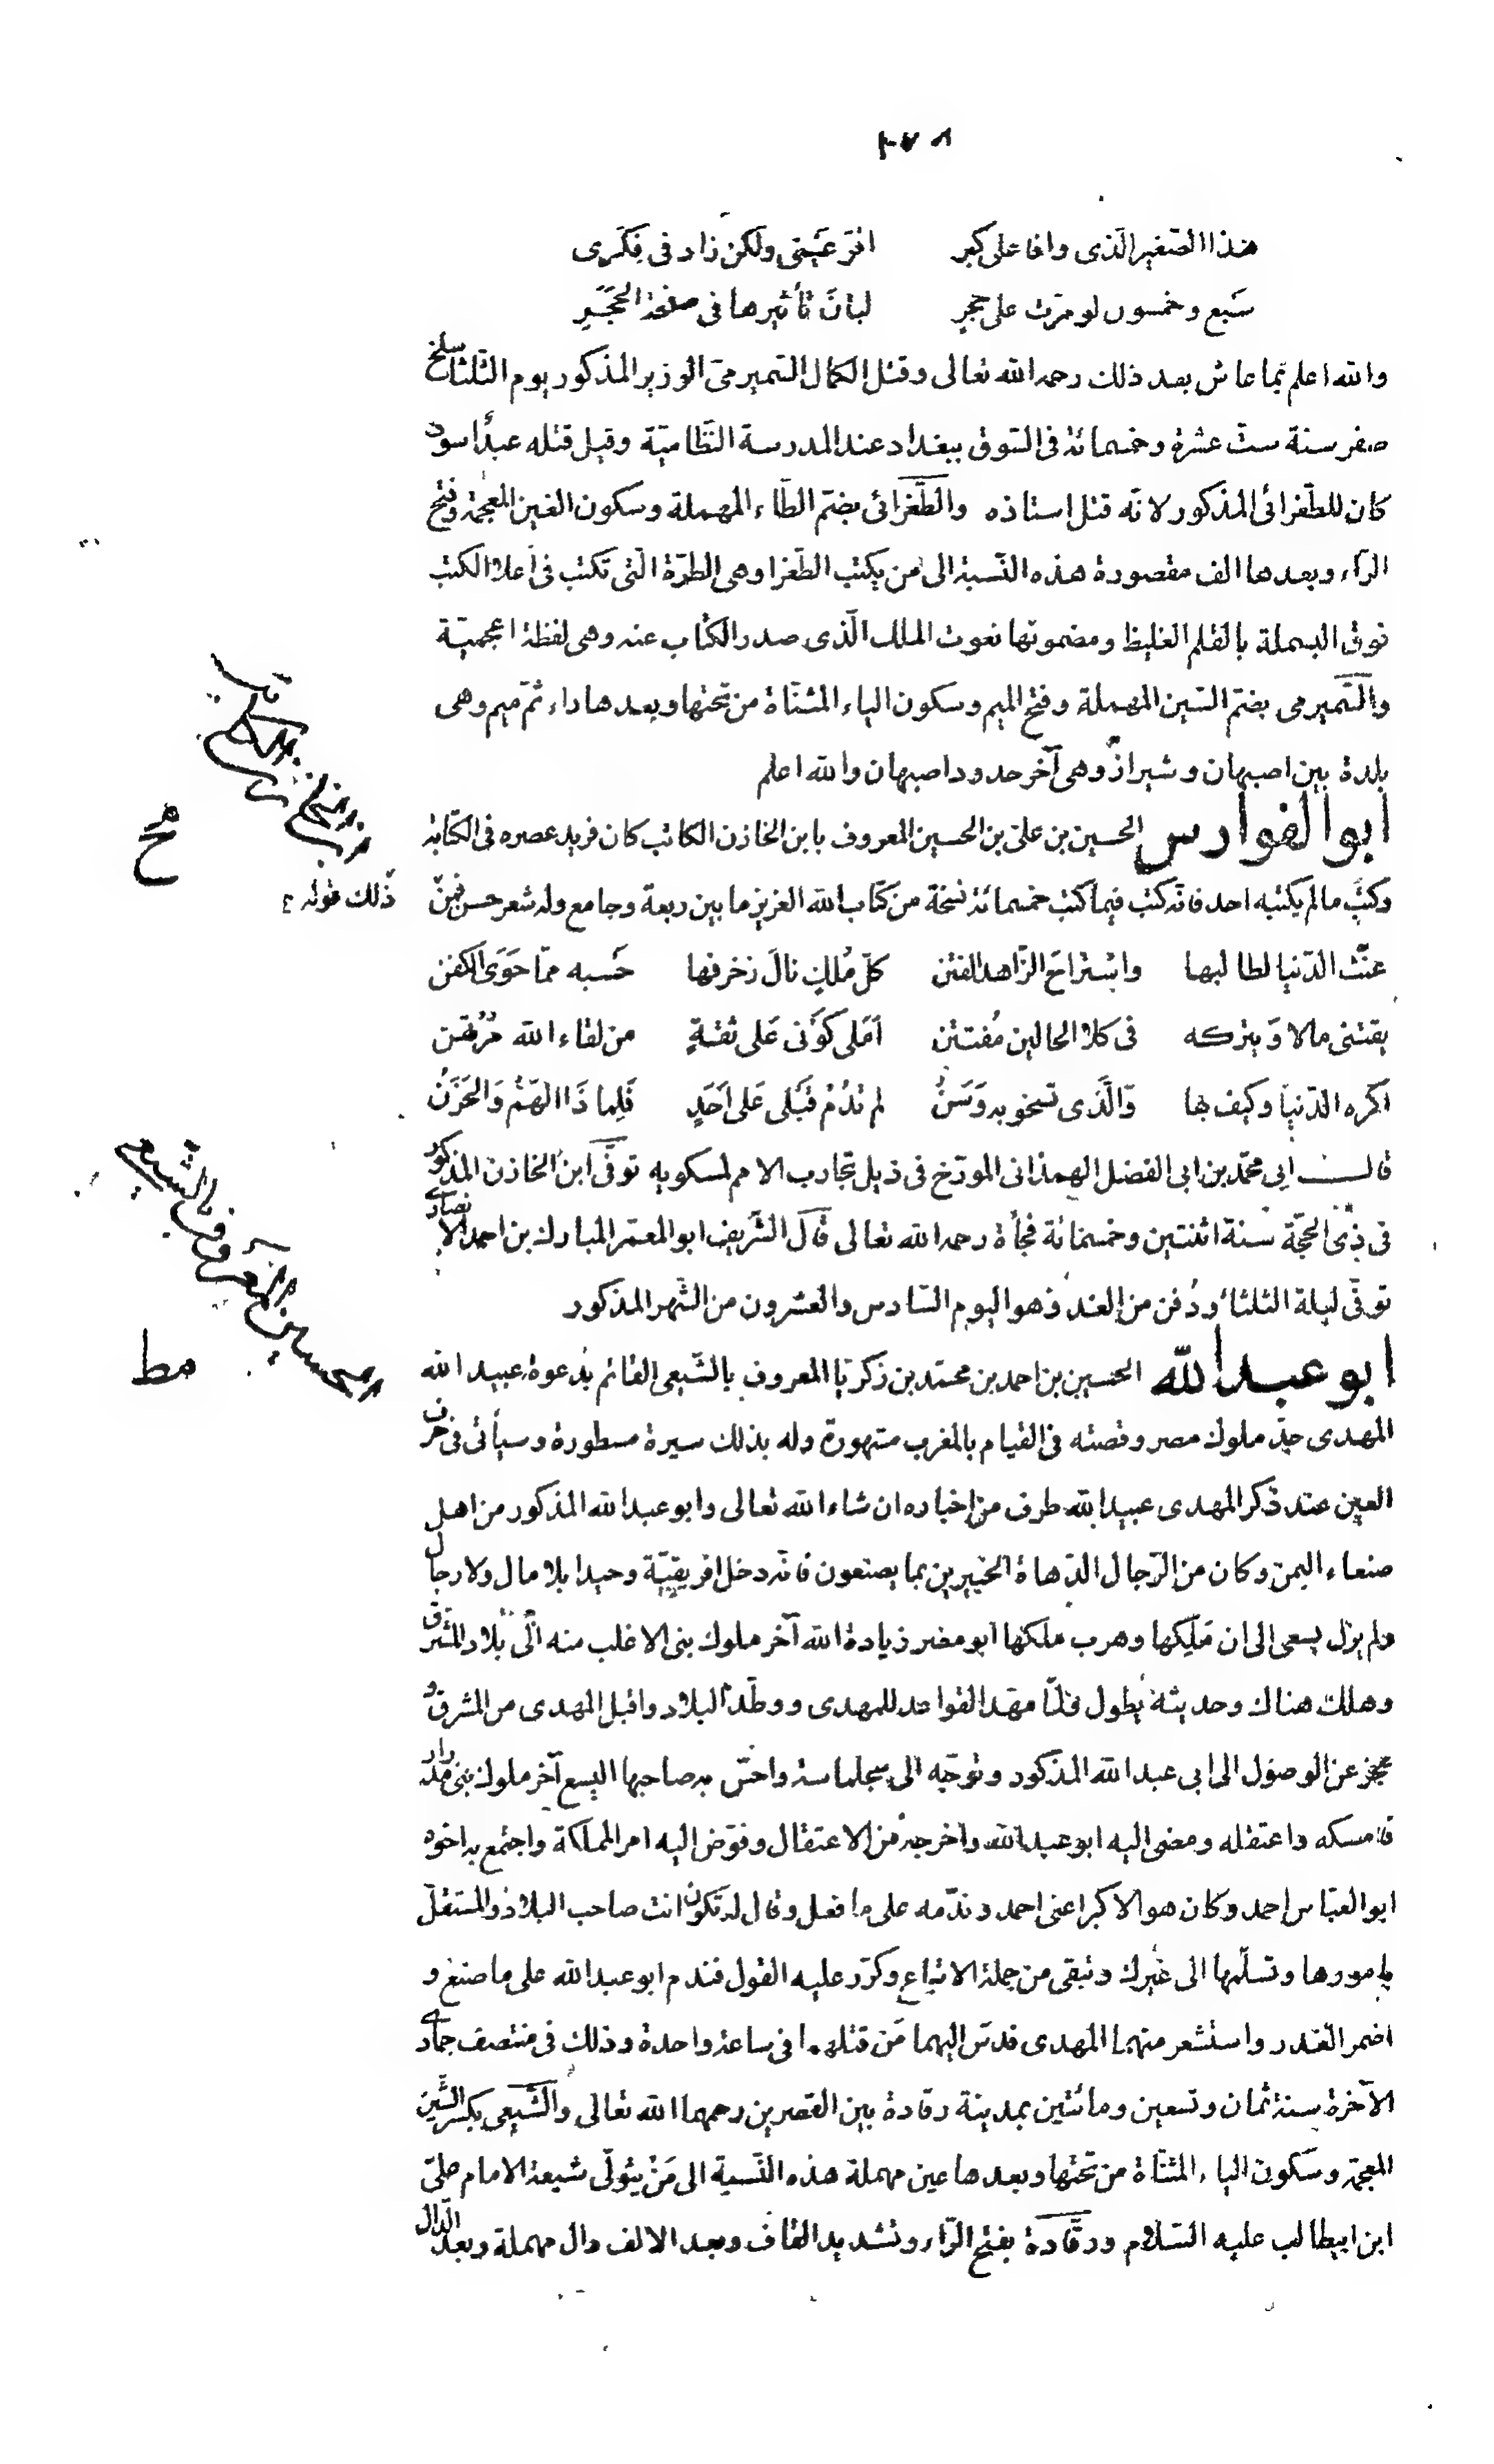 ١٧٨
هذا الصغير الّذى وافا على كبر اقرّ عَينى ولكن زاد فى فِكَرى
سَبع وخمسون لو مرّت على حجرٍ لبانَ تأثيرها فى صفحة الحَجَرِ
والله اعلم بما عاش بعد ذلك رحمه الله تعالى وقتل الكمال السّميرمىّ الوزير المذكور يوم الثّلثا سلخ
صفر سنة ستّ عشرة وخمسمائة فى السّوق ببغداد عند المدرسة النّظاميّة وقيل قتله عبدٌ اسود
كان للطّغرائى المذكور لانّه قتل استاذه والطّغرائى بضمّ الطّاء المهملة وسكون الغين المعجمة وفتح
الرّاء وبعدها الف مقصورة هذه النّسبة الى من يكتب الطّغرا وهى الطرّة الّتى تكتب فى أعلا الكتب
فوق البسملة بالقلم الغليظ ومضمونها نعوت الملك الّذى صدر الكتاب عنه وهى لفظة اعجميّة
والسّميرمى بضمّ السّين المهملة وفتح الميم وسكون الياء المثنّاة من تحتها وبعدها راء ثمّ ميم وهى
بلدة بين اصبهان وشيراز وهى آخر حدود اصبهان والله اعلم
ابو الفوارس الحسين بن علىّ بن الحسين المعروف بابن الخازن الكاتب كان فريد عصره فى الكتابة
وكتَب مالم يكتبه احد فانّه كتب فيما كتب خمسمائة نسخة من كتاب الله العزيز ما بين ربعة وجامع وله شعر حسن فمن
ذلك قوله
مح
عنّت الدّنيا لطالبها واستراحَ الزّاهد الفتن كلّ مُلكٍ نالَ زخرفها حَسبه ممّا حَوَى الكفن
يقتنى مالا وَيتركه فى كلا الحالين مُفتتن اَمَلى كَوْنى عَلى ثقةٍ من لقاء الله مُرتهن
اكره الدّنيا وكيف بها وَالّذى تسخو به وَسَنُ لم تدُمْ قبْلى عَلى اَحَدٍ فَلِما ذَا الهَمّ وَالحَزَنُ
قالـــ ابى محمّد بن ابى الفضل الهمذانى المورّخ فى ذيل تجارب الامم لمسكويه توفّى ابن الخازن المذكور
فى ذى الحجّة سنة اثنتين وخمسمائة فجأة رحمه الله تعالى قال الشّريف ابو المعمّر المبارك بن احمد الانصارى
توفّى ليلة الثلثا ودُفن من الغد وهو اليوم السّادس والعشرون من الشّهر المذكور
ابو عبد الله الحسين بن احمد بن محمّد بن زكريّا المعروف بالشّيعى القائم بدعوة عبيد الله
الحسين المعروف بالشيعى
مط
المهدى جدّ ملوك مصر وقصّته فى القيام بالمغرب مشهورة وله بذلك سيرة مسطورة وسيأتى فى حرف
العين عند ذكر المهدى عبيد الله طرف من اخباره ان شاء الله تعالى وابو عبد الله المذكور من اهل
صنعاء اليمن وكان من الرّجال الدّهاة الخبيرين بما يصنعون فانّه دخل افريقيّة وحيدا بلا مال ولا رجال
ولم يزل يسعى الى ان مَلكها وهرب ملكها ابو مضر زيادة الله آخر ملوك بنى الاغلب منه الى بلاد المشرق
وهلك هناك وحديثه يطول فلمّا مهّد القواعد للمهدى ووطّد البلاد واقبل المهدى من المشرق و
عجز عن الوصول الى ابى عبد الله المذكور وتوجّه الى سجلماسة واحسّ به صاحبها اليسع آخر ملوك بنى مدرار
فامسكه واعتقله ومضى اليه ابو عبد الله واخرجه من الاعتقال وفوّض اليه امر المملكة واجتمع به اخوه
ابو العبّاس احمد وكان هو الاكبر اعنى احمد وندّمه على ما فعل وقال له تكون انت صاحب البلاد والمستقلّ
بامورها وتسلّمها الى غيرك وتبقى من جملة الاتباع وكرّر عليه القول فندم ابو عبد الله على ما صنع و
اضمر الغدر واستشعر منهما المهدى فدسّ اليهما مَن قتلهما فى ساعة واحدة وذلك فى منتصف جمادى
الآخرة سنة ثمان وتسعين ومائتين بمدينة رقادة بين القصرين رحمهما الله تعالى والشّيعى بكسر الشّين
المعجمة وسكون الياء المثنّاة من تحتها وبعدها عين مهملة هذه النّسبة الى مَنْ يتولّى شيعة الامام علىّ
ابن ابيطالب عليه السّلام ورقّادة بفتح الرّاء وتشديد القاف وبعد الالف دال مهملة وبعد الدّال